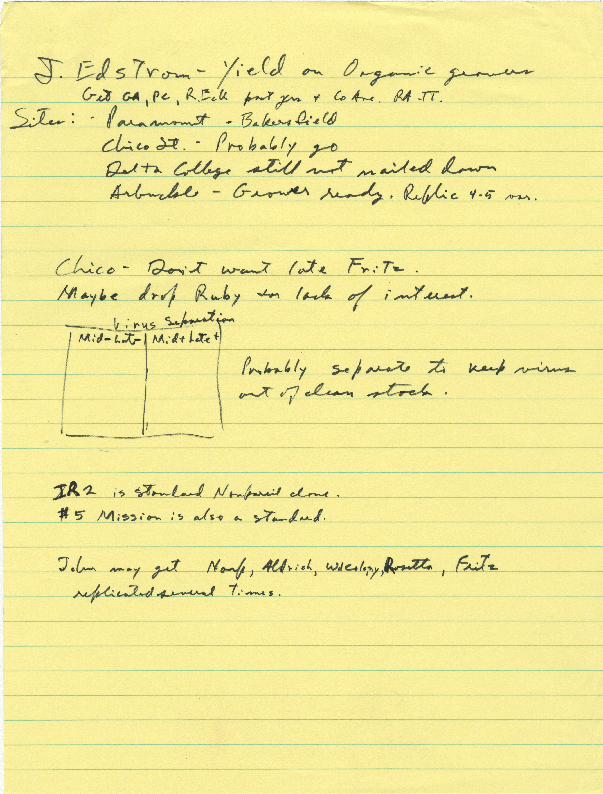 J. Edstrom - Yield on Organic growers
Get GA, PC, R.Eck past yrs + Co Ave. RA-TT.
Sites: - Paramount - Bakersfield
Chico St. - Probably go
Delta College still not nailed down
Arbuckle - Grower ready. Replic 4-5 var.
Chico - Don't want late Fritz.
Maybe drop Ruby for lack of interest.
Virus Separation
Mid- Late- Mid+ Late+
Probably separate to keep virus
out of clean stock.
IR2 is standard Nonpareil clone.
#5 Mission is also a standard.
John may get Nonp, Aldrich, Wdcolony, Rosetta, Fritz
replicated several times.